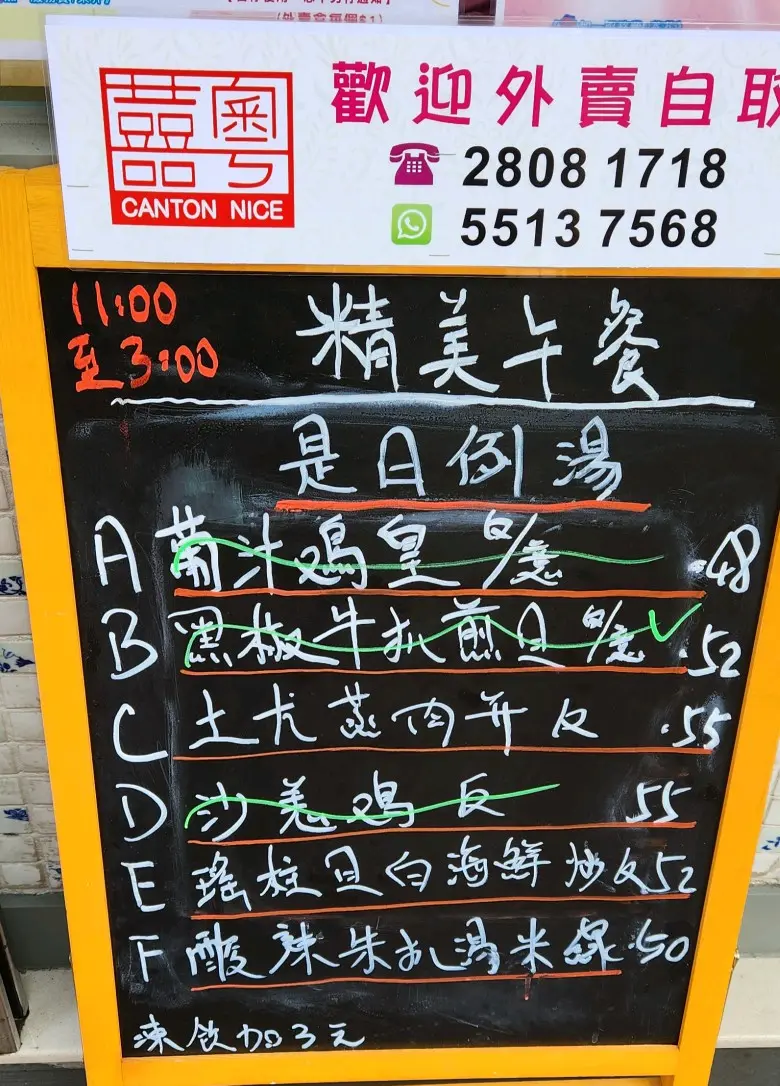 (外賣盒每個$1)
囍粵
CANTON NICE
歡迎外賣自取
2808 1718
5513 7568
11:00
至3:00
精美午餐
是日例湯
A 葡汁鸡皇 白/意 .48
B 黑椒牛扒煎旦 白/意 .52
C 土尤蒸肉并反 .55
D 沙姜鸡反 55
E 瑤柱旦白海鮮炒反52
F 酸辣朱扒湯米線.50
凍飲加3元